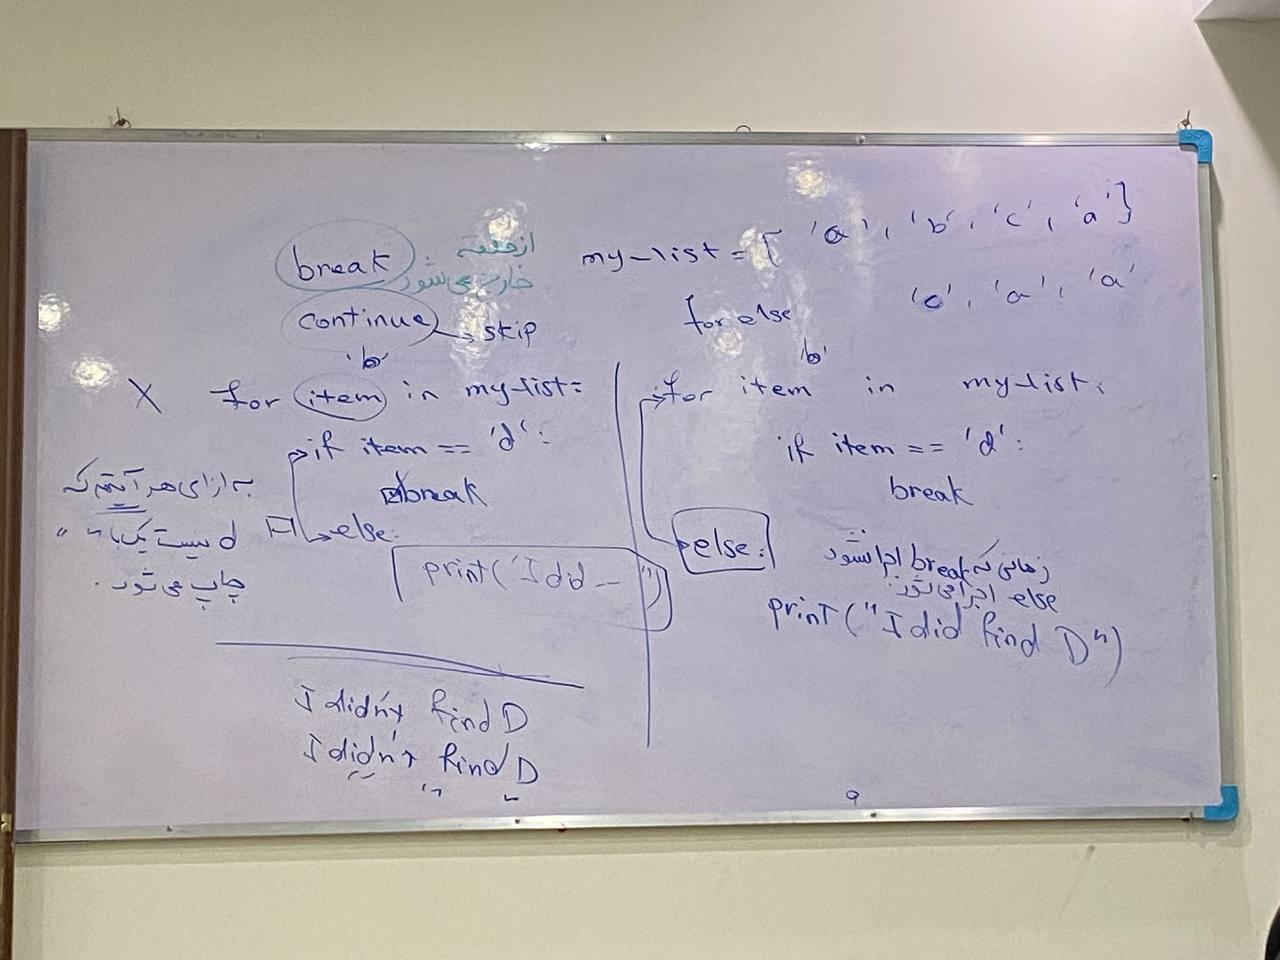 my-list = [ 'a', 'b', 'c', 'a' ]
'c', 'a', 'a'
for else
break از حلقه خارج می‌شود
continue → skip
'b'
X for item in my-list:
if item == 'd':
break
else:
print('I did — ")
به ازای هر آیتم که
d نیست یکبار " "
چاپ می‌شود.
I didn't find D
I didn't find D
" "
'b'
for item in my-list:
if item == 'd':
break
else:
زمانی که break اجرا نشود
else اجرا می‌شود.
print("I did find D")
9